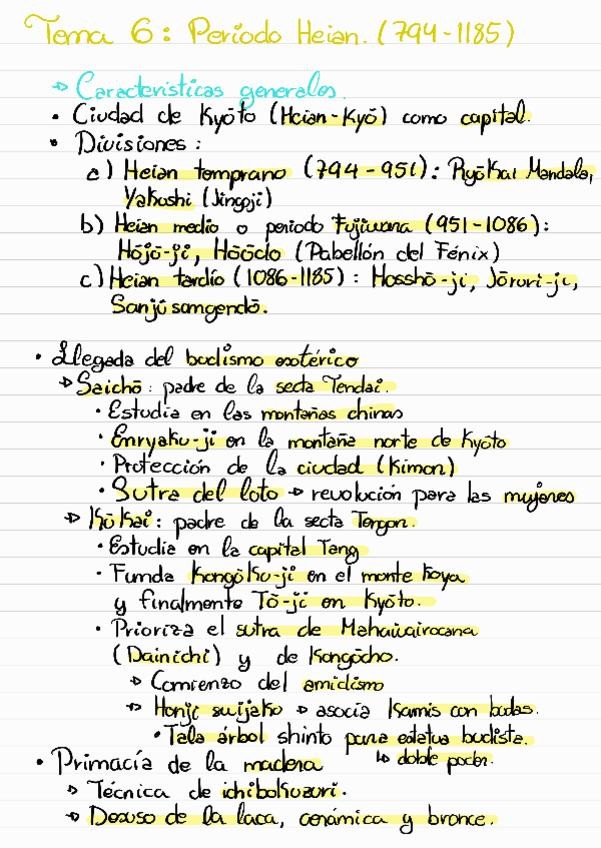 Tema 6: Período Heian. (794-1185)
→ Características generales.
• Ciudad de Kyōto (Heian-Kyō) como capital.
• Divisiones:
a) Heian temprano (794-951): Ryōkai Mandala,
Yakushi (Jingoji)
b) Heian medio o periodo Fujiwara (951-1086):
Hōjō-ji, Hōōdo (Pabellón del Fénix)
c) Heian tardío (1086-1185): Hosshō-ji, Jōruri-ji,
Sanjūsangendō.
• Llegada del budismo esotérico
→ Saichō: padre de la secta Tendai.
• Estudia en las montañas chinas
• Enryaku-ji en la montaña norte de Kyōto
• Protección de la ciudad (Kimon)
• Sutra del loto → revolución para las mujeres
→ Kūkai: padre de la secta Tongon.
• Estudia en la capital Tang
• Funda Kongōku-ji en el monte Koya
y finalmente Tō-ji en Kyōto.
• Prioriza el sutra de Mahavairocana
(Dainichi) y de Kongōcho.
→ Comienzo del amidismo
→ Honji suijako → asocia Kamis con budas.
• Tala árbol shinto para estatua budista.
↳ doble poder.
• Primacía de la madera
→ Técnica de ichibokuzuri.
→ Desuso de la laca, cerámica y bronce.